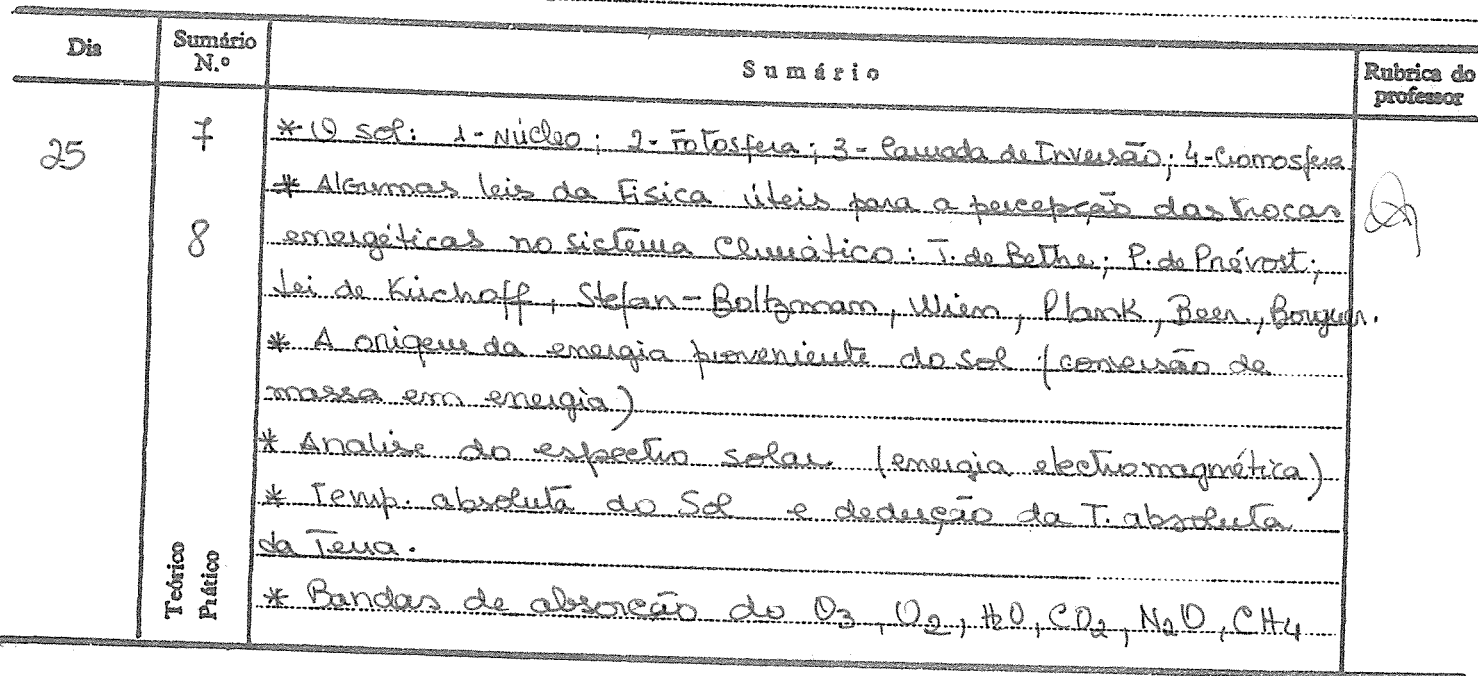 Dia Sumário N.º Sumário Rubrica do professor
25 7 * O sol: 1 - Núcleo; 2 - Fotosfera; 3 - Camada de Inversão; 4 - Cromosfera
* Algumas leis da Fisica úteis para a percepção das trocas
8 energéticas no sistema Climático: T. de Bethe; P. de Prévost;
Lei de Kirchoff, Stefan-Boltzmam, Wien, Plank, Beer, Bouguer.
* A origem da energia proveniente do sol (conversão de
massa em energia)
* Analise do espectro solar (energia electromagnética)
* Temp. absoluta do Sol e dedução da T. absoluta
da Terra.
Teórico Prático * Bandas de absorcão do O3, O2, H2O, CO2, N2O, CH4